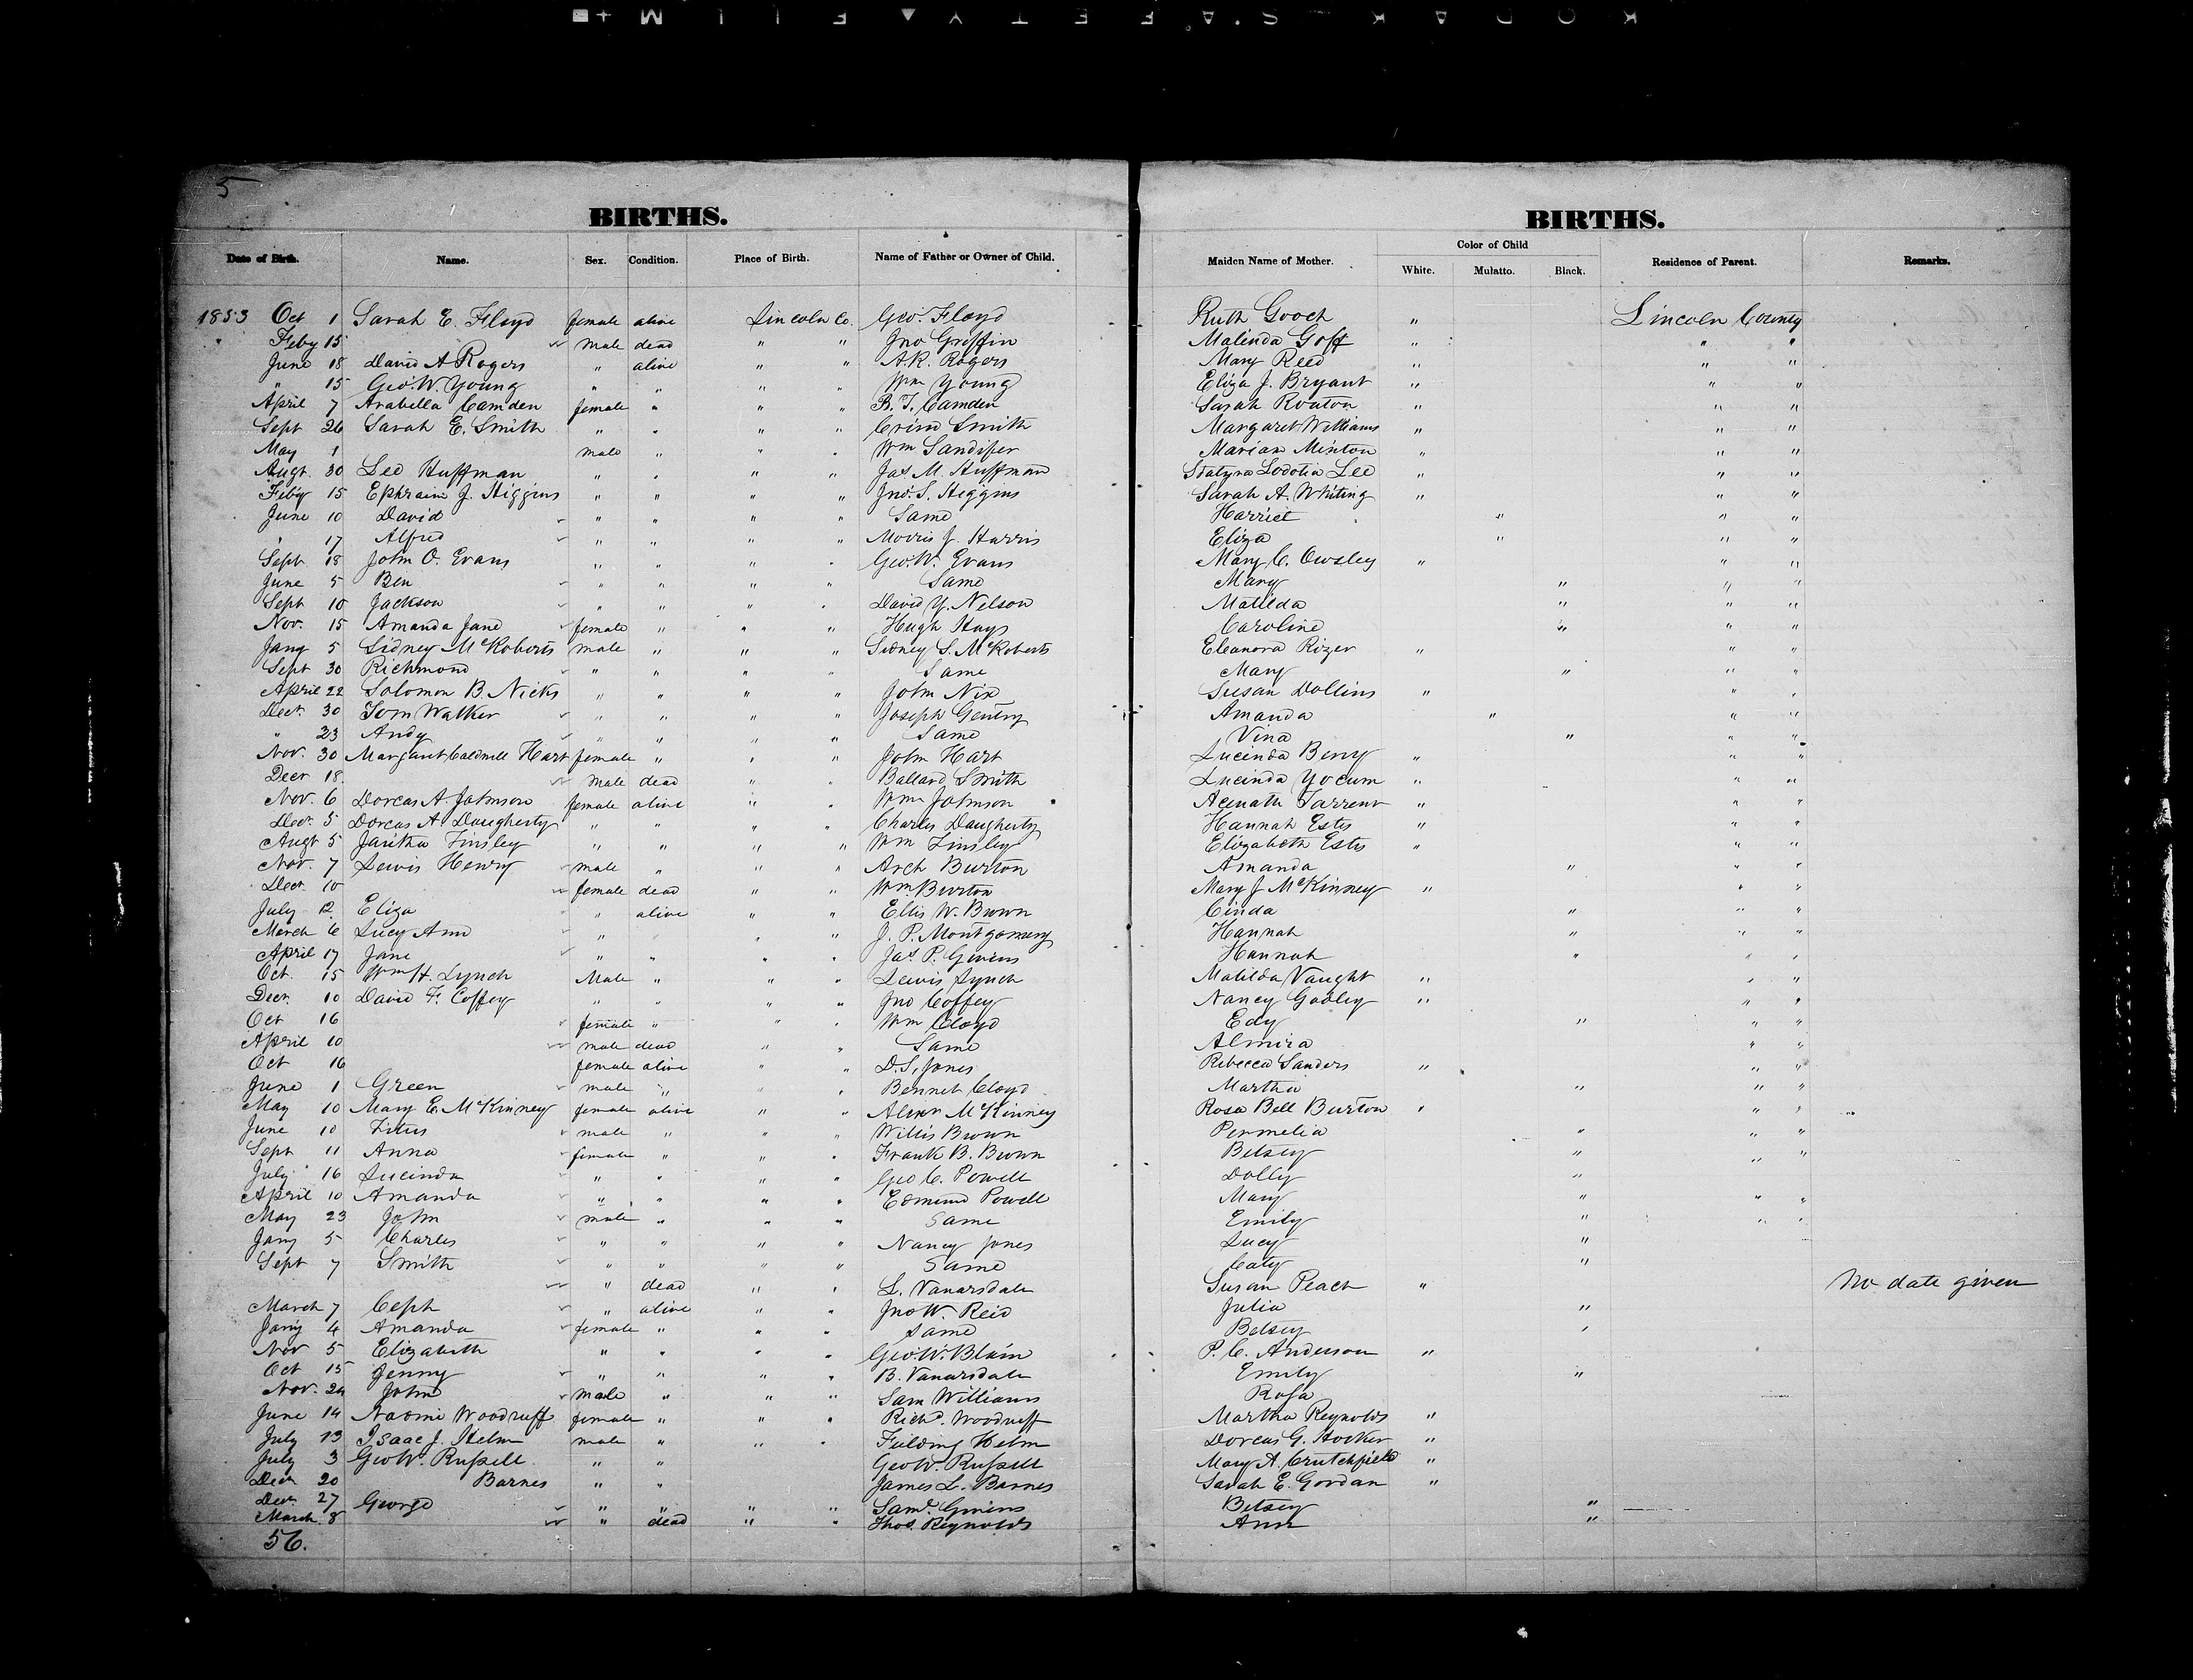 KODAK SAFETY FILM
5
BIRTHS. BIRTHS.
Date of Birth. Name. Sex. Condition. Place of Birth. Name of Father or Owner of Child. Maiden Name of Mother. Color of Child White. Mulatto. Black. Residence of Parent. Remarks.
1853 Oct 1 Sarah E. Floyd female alive Lincoln Co. Geo. Floyd Ruth Gooch " Lincoln County
" Feby 15 male dead " " Jno Griffin Malinda Goff " " "
June 18 David A Rogers " alive " " A.R. Rogers Mary Reed " " "
" 15 Geo. W. Young " " " " Wm Young Eliza J. Bryant " " "
April 7 Arabella Camden female " " " B. T. Camden Sarah Routon " " "
Sept 26 Sarah E. Smith " " " " Smith Margaret Williams " " "
May 1 male " " " Wm Sandifer Marian Minton " " "
Augt. 30 Lee Huffman " " " " Jas. M. Huffman Lodotia Lee " " "
Feby 15 Ephraim J. Higgins " " " " Jno. S. Higgins Sarah A. Whiting " " "
June 10 David " " " " Same Harriet " " "
" 17 Alfred " " " " Morris J. Harris Eliza " " "
Sept 18 John O. Evans " " " " Geo. W. Evans Mary C. Owsley " " "
June 5 Ben " " " " Same Mary " " "
Sept 10 Jackson " " " " David Y. Nelson Matilda " " "
Nov. 15 Amanda Jane female " " " Hugh Hays Caroline " " "
Jany 5 Sidney McRoberts male " " " Sidney S. McRoberts Eleanora Rizer " " "
Sept 30 Richmond " " " " Same Mary " " "
April 22 Solomon B. Nicks " " " " John Nix Susan Dollins " " "
Decr. 30 Tom Walker " " " " Joseph Gentry Amanda " " "
" 23 Andy " " " " Same Vina " " "
Nov. 30 Margaret Caldwell Hart female " " " John Hart Lucinda Berry " " "
Decr 18 male dead " " Ballard Smith Lucinda Yocum " " "
Nov. 6 Dorcas A. Johnson female alive " " Wm Johnson Acenath Tarrent " " "
Decr. 5 Dorcas A. Daugherty " " " " Charles Daugherty Hannah Estes " " "
Augt 5 Janitha Tinsley " " " " Wm Tinsley Elizabeth Estes " " "
Nov. 7 Lewis Henry male " " " Arch Burton Amanda " " "
Decr. 10 female dead " " Wm Burton Mary J McKinney " " "
July 12 Eliza " alive " " Ellis W. Brown Cinda " " "
March 6 Lucy Ann " " " " J. P. Montgomery Hannah " " "
April 17 Jane " " " " Jas. P. Givens Hannah " " "
Oct. 15 Wm H. Lynch Male " " " Lewis Lynch Matilda Vaught " " "
Decr. 10 David F. Coffey " " " " Jno Coffey Nancy Gadley " " "
Oct 16 female " " " Wm Cloyd Edy " " "
April 10 male dead " " Same Almira " "
Oct 16 female alive " " D. S. Jones Rebecca Sanders " " "
June 1 Green male " " " Bennet Cloyd Martha " " "
May 10 Mary E. McKinney female alive " " Alexr McKinney Rosa Bell Burton " " "
June 10 Titus male " " " Willis Brown Permelia " " "
Sept 11 Anna female " " " Frank B. Brown Betsey " " "
July 16 Lucinda " " " " Geo C. Powell Dolly "
April 10 Amanda " " " " Edmund Powell Mary " " "
May 23 John male " " " Same Emily " " "
Jany 5 Charles " " " " Nancy Jones Lucy "
Sept 7 Smith " " " " Same Caty "
" dead " " L. Vanarsdale Susan Peach " No date given
March 7 Ceph " alive " " Jno W. Reid Julia "
Jany 4 Amanda female " " " Same Betsey "
Nov 5 Elizabeth " " " " Geo. W. Blain P. C. Anderson "
Oct 15 Jenny " " " " B. Vanarsdale Emily "
Nov. 24 John male " " " Sam Williams Rosa
June 14 Naomi Woodruff female " " " Richd. Woodruff Martha Reynolds "
July 13 Isaac J. Helm male " " " Fielding Helm Dorcas G. Hocker "
July 3 Geo W. Russell " " Geo W. Russell Mary A. Crutchfield "
Decr 20 Barnes " " James L. Barnes Sarah E. Gordan "
Decr. 27 George " " " " Saml. Givens Betsey "
March 8 " dead " " Thos. Reynolds Ann "
56.